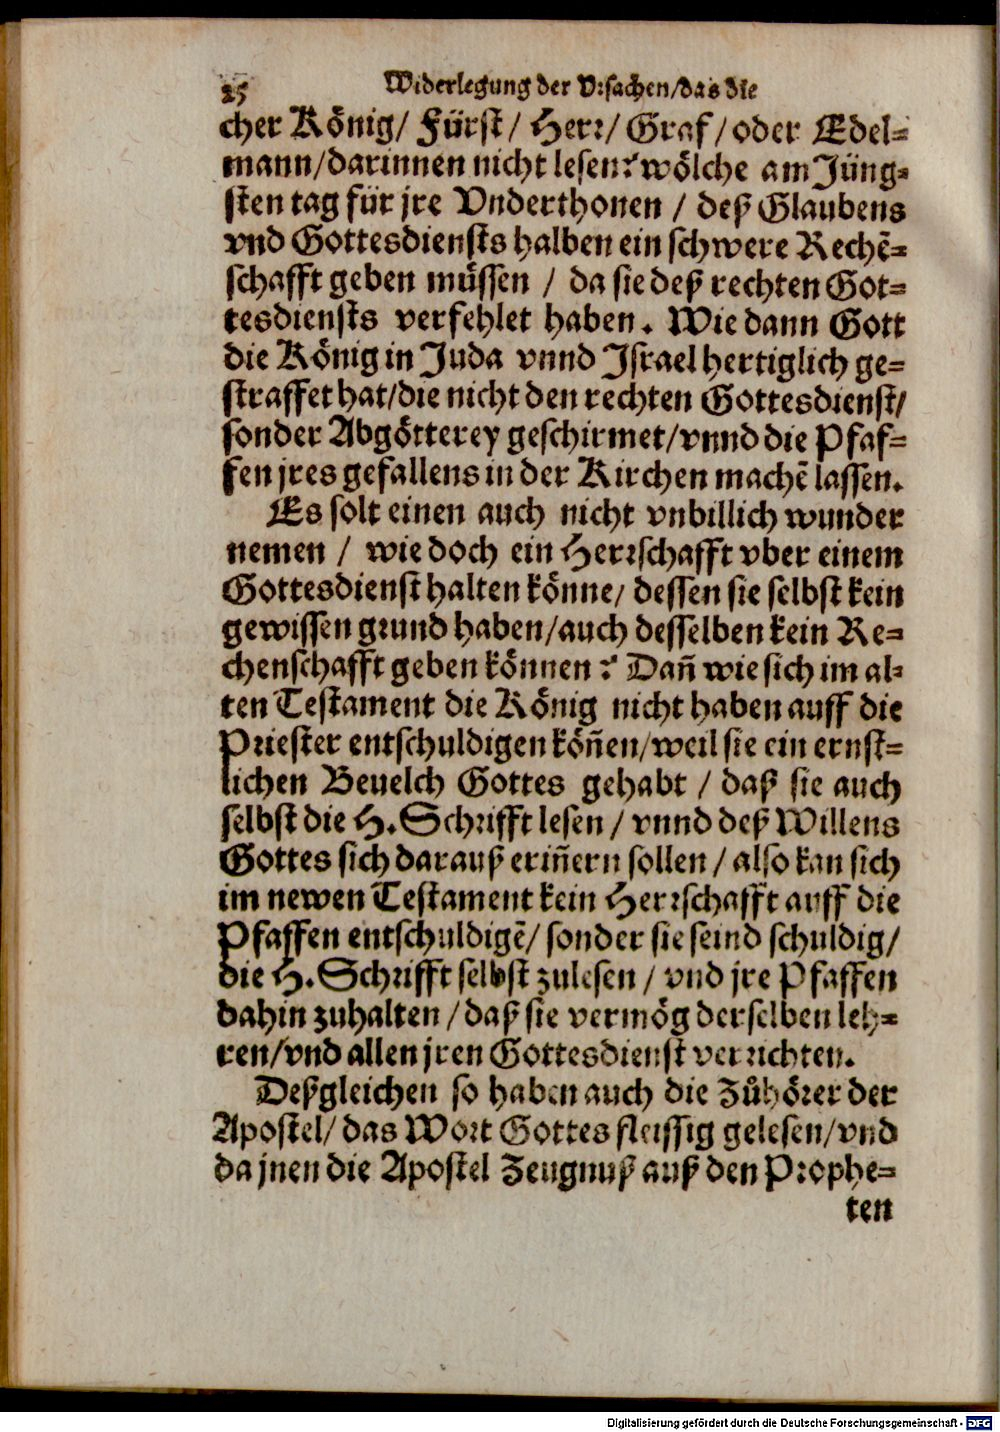 25 Widerlegung der Vrsachen/das die
cher König/ Fürst/ Herr/ Graf/oder Edel⸗
mann/darinnen nicht lesen? wölche am Jüng⸗
sten tag für jre Vnderthonen / deß Glaubens
vnd Gottesdiensts halben ein schwere Rechē⸗
schafft geben müssen / da sie deß rechten Got⸗
tesdiensts verfehlet haben. Wie dann Gott
die König in Juda vnnd Israel hertiglich ge⸗
straffet hat/die nicht den rechten Gottesdienst/
sonder Abgötterey geschirmet/vnnd die Pfaf⸗
fen jres gefallens in der Kirchen machē lassen.
Es solt einen auch nicht vnbillich wunder
nemen / wie doch ein Herrschafft vber einem
Gottesdienst halten könne/ dessen sie selbst kein
gewissen grund haben/auch desselben kein Re⸗
chenschafft geben können? Dañ wie sich im al⸗
ten Testament die König nicht haben auff die
Priester entschuldigen köñen/weil sie ein ernst⸗
lichen Beuelch Gottes gehabt / daß sie auch
selbst die H. Schrifft lesen / vnnd deß Willens
Gottes sich darauß eriñern sollen / also kan sich
im newen Testament kein Herrschafft auff die
Pfaffen entschuldigē/ sonder sie seind schuldig/
die H. Schrifft selbst zulesen / vnd jre Pfaffen
dahin zuhalten / daß sie vermög derselben leh⸗
ren/vnd allen jren Gottesdienst verrichten.
Deßgleichen so haben auch die Zůhörer der
Apostel/ das Wort Gottes fleissig gelesen/vnd
da jnen die Apostel Zeugnuß auß den Prophe⸗
ten
Digitalisierung gefördert durch die Deutsche Forschungsgemeinschaft - DFG